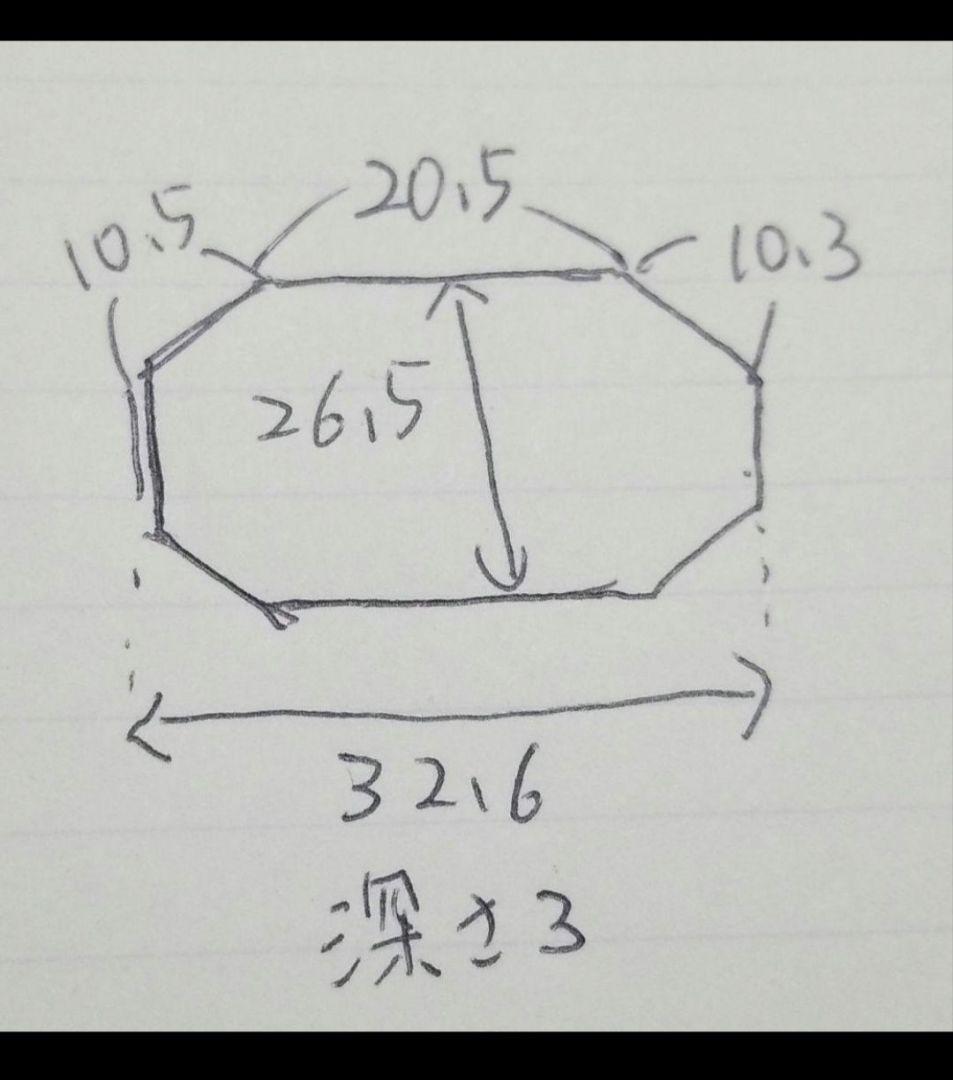 20.5
10.5
10.3
26.5
32.6
深さ3